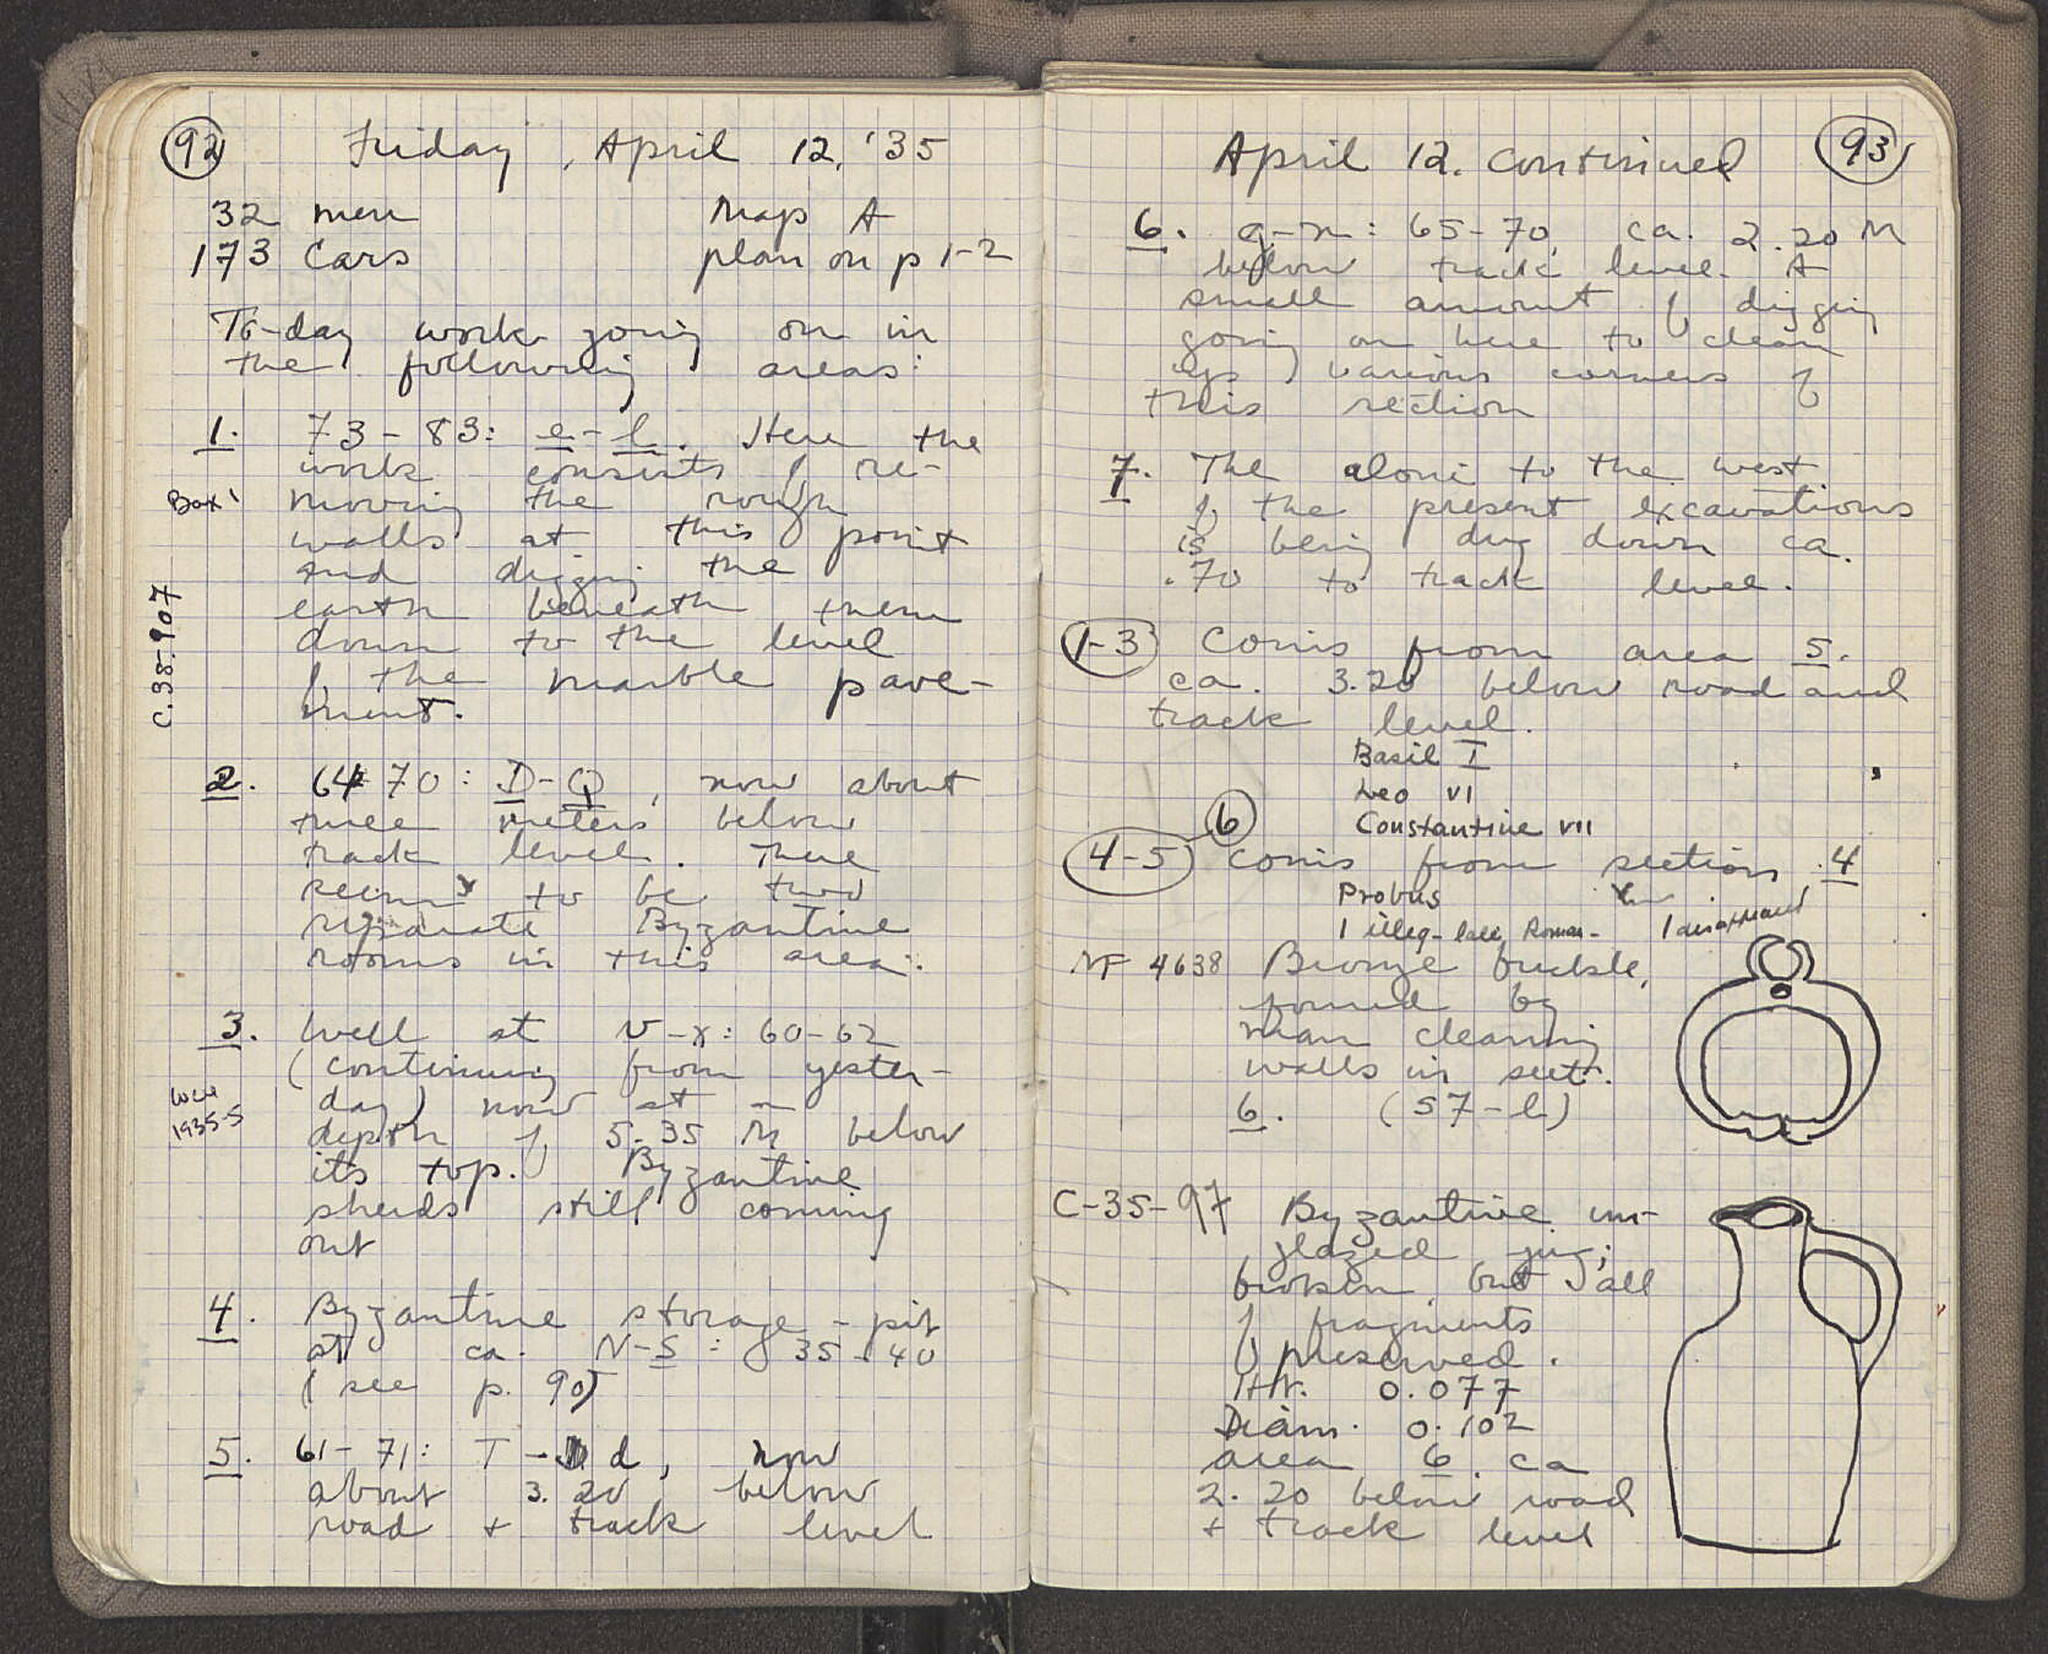 92
Friday, April 12, '35
32 men Map A
173 Cars plan on p 1-2
To-day work going on in
the following areas:
1. 73-83: e-l. Here the
work consists of re-
Box 1
moving the rough
walls at this point
and digging the
earth beneath them
down to the level
of the marble pave-
ment.
C.35.907
2. 64-70: D-Q, now about
three meters below
track level. There
seems to be two
separate Byzantine
rooms in this area.
3. Well at v-x: 60-62
(continuing from yester-
day) now at a
Well
1935-5
depth of 5.35 M below
its top. Byzantine
sherds still coming
out
4. Byzantine storage-pit
at ca. N-S: 35-40
(see p. 90)
5. 61-71: T-d, now
about 3.20, below
road + track level
April 12. continued 93
6. g-n: 65-70, ca. 2.20 M
below track level. A
small amount of digging
going on here to clean
up various corners of
this section
7. The aloni to the west
of the present excavations
is being dug down ca.
.70 to track level.
1-3 Coins from area 5.
ca. 3.20 below road and
track level.
Basil I
Leo VI
Constantine VII
6
4-5 coins from section 4
Probus
1 illeg-late Roman- 1 disappeared
NF 4638 Bronze buckle,
found by
man cleaning
walls in sect.
6. (57-l)
C-35-97 Byzantine un-
glazed jug;
broken, but all
of fragments
preserved.
Ht. 0.077
Diam. 0.102
area 6. ca
2.20 below road
+ track level